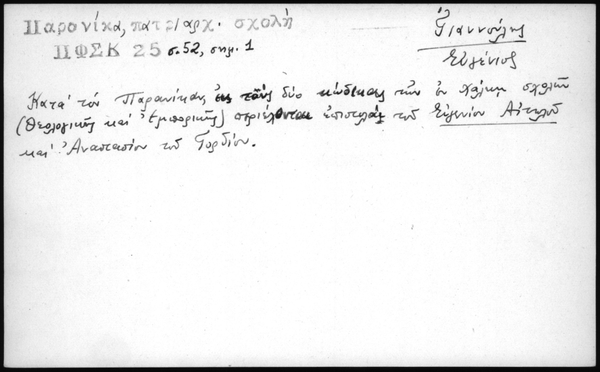 Παρανίκα, πατριαρχ. σχολή
ΠΦΣΚ 25 σ. 52, σημ. 1
Γιαννούλης
Εὐγένιος
Κατά τόν Παρανίκαν εἰς τούς δύο κώδικας τῶν ἐν Χάλκῃ σχολῶν
(Θεολογικῆς καί Ἐμπορικῆς) ἐπιστολαί τοῦ Εὐγενίου Αἰτωλοῦ
καί Ἀναστασίου τοῦ Γορδίου.